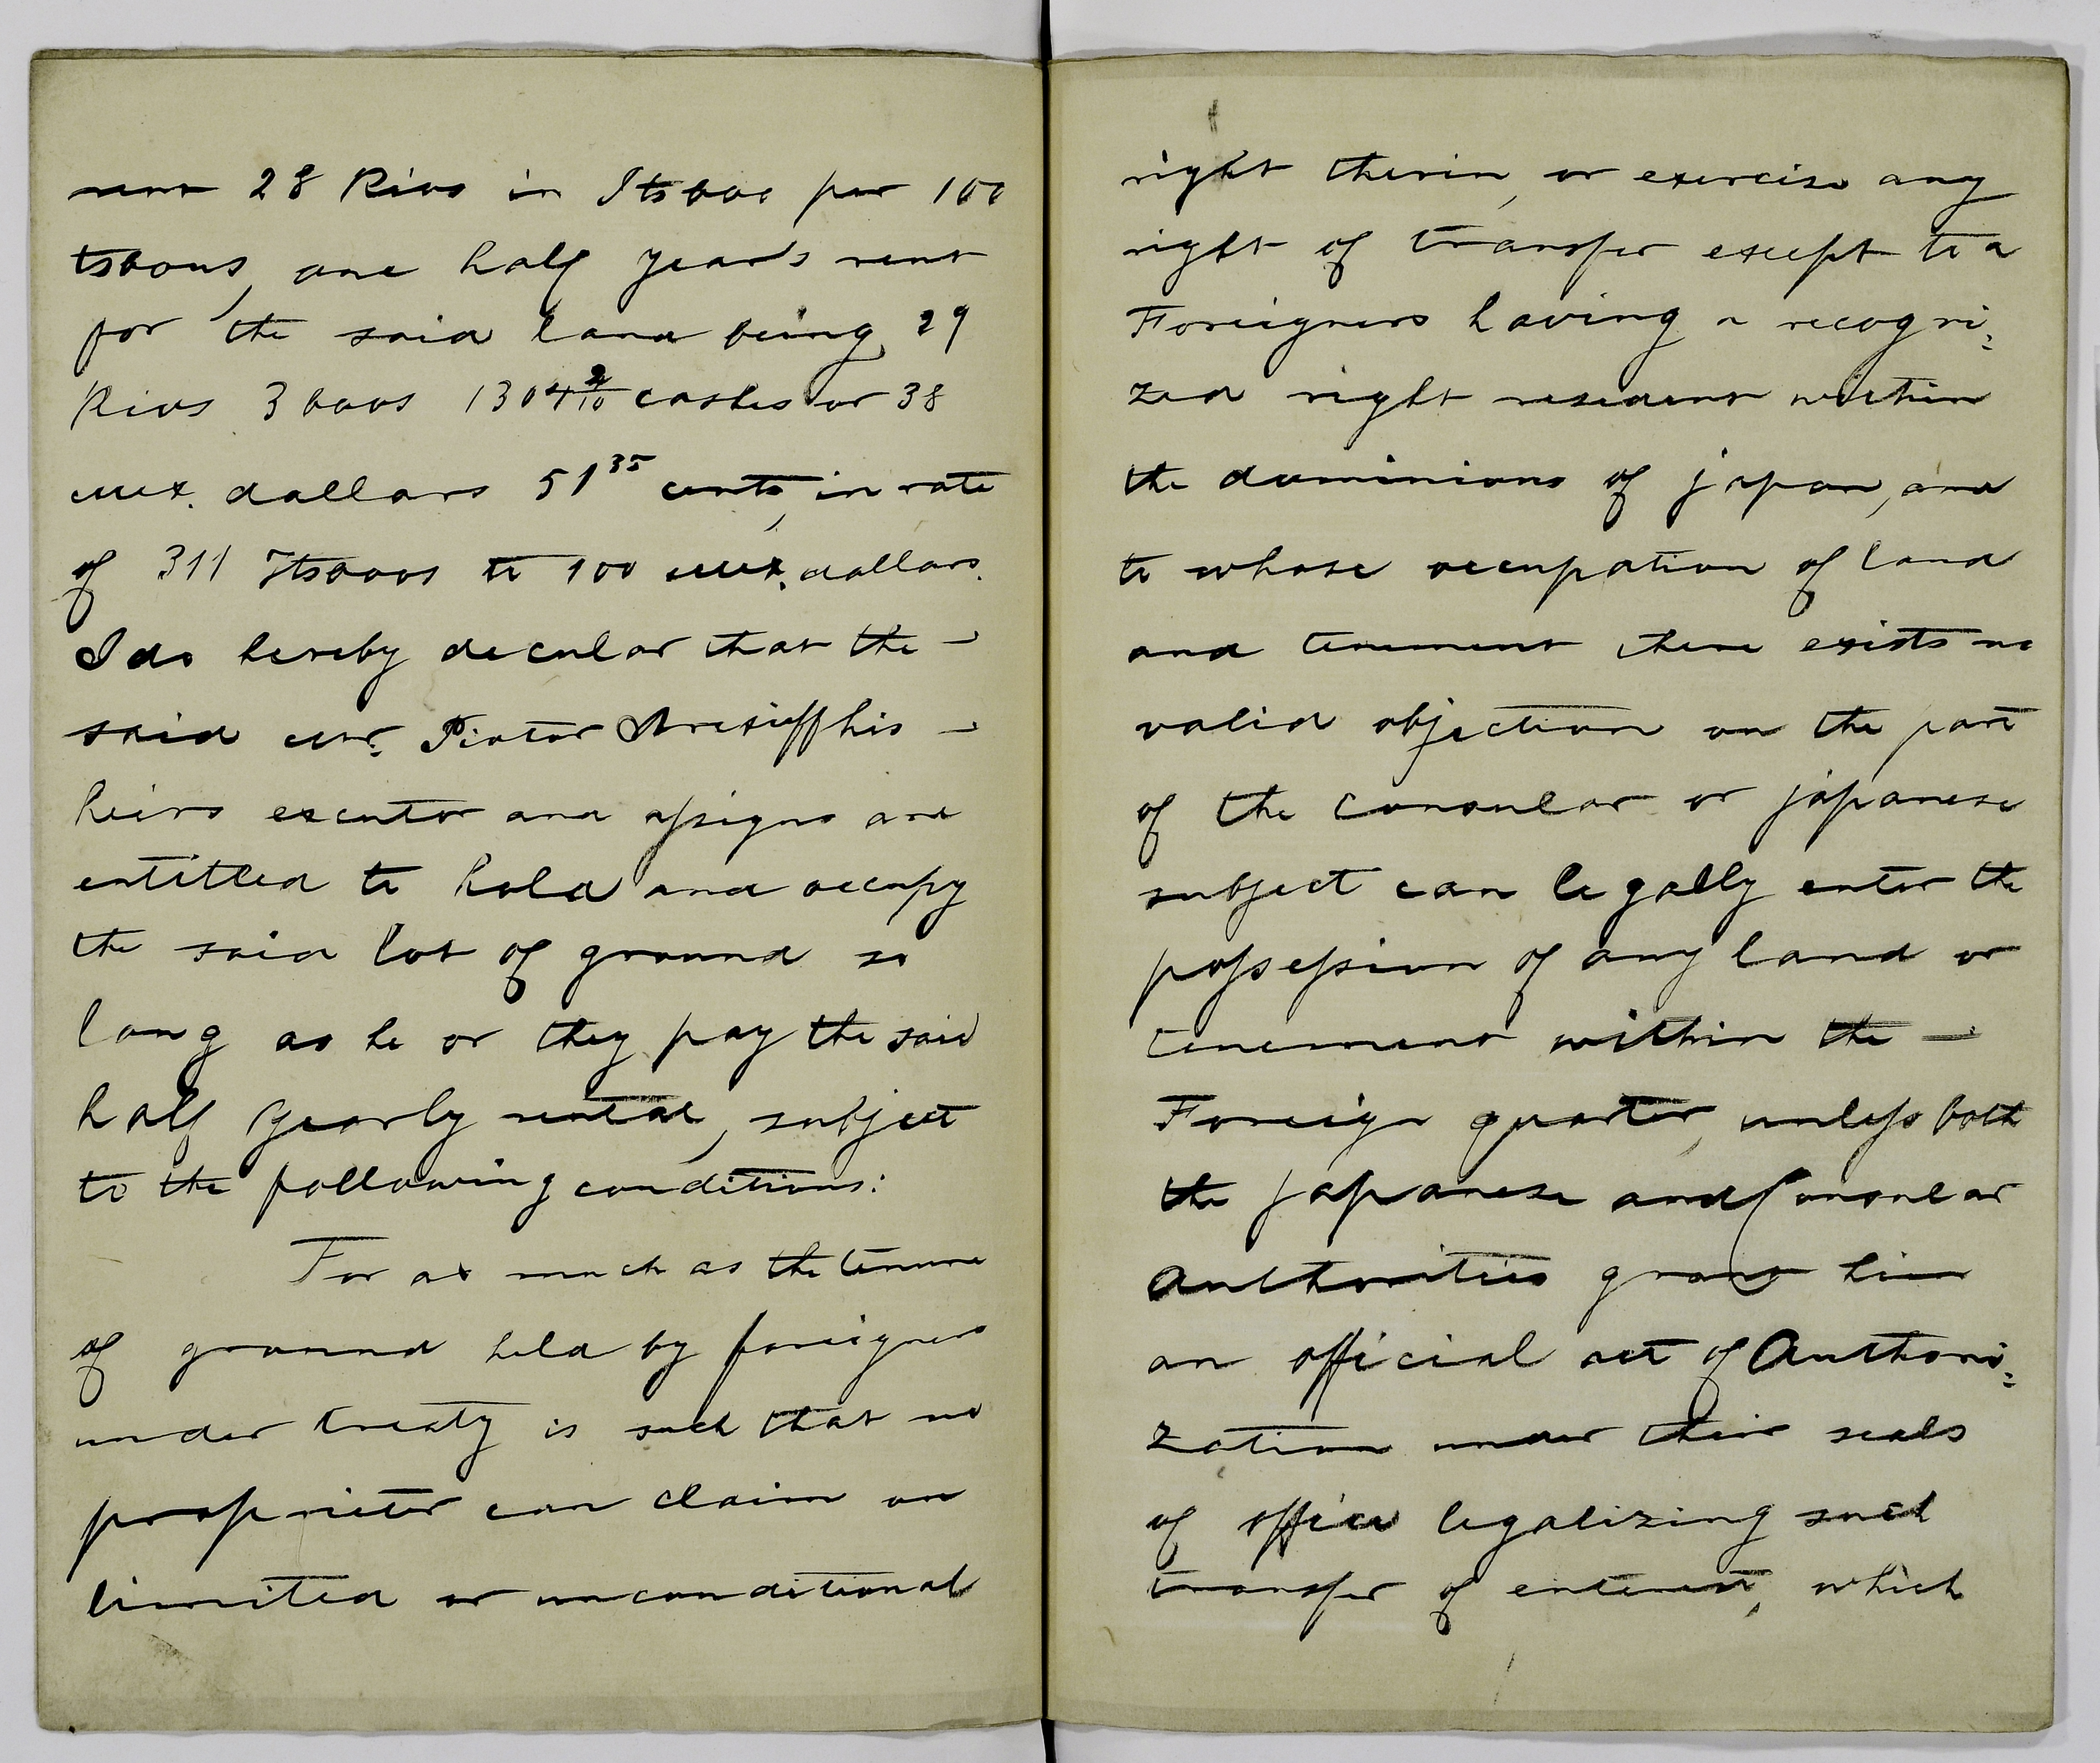 rent 28 Rios in Itsboos per 100
tsbous, one half year's rent
for the said land being 29
Rios 3 boos 1304 2/10 cashes or 38
mex. dollars 51 35 cents, in rate
of 311 Itsboos to 100 mex. dollars.
I do hereby decular that the –
said mr. Pioter Arexieff his –
heirs excutor and assigns are
entitled to hold and occupy
the said lot of ground so
long as he or they pay the said
half yearly rental, subject
to the following conditions:
For as much as the tenure
of ground held by foreigners
under treaty is such that no
proprietor can claim an
limited or unconditional
right therin, or exercise any
right of transfer except to a
Foreigners having a recogni=
zed right resident within
the dominions of japan, and
to whose occupation of land
and tenement there exists no
valid objection on the part
of the consular or japanese
subject can legally enter the
possession of any land or
tenement within the –
Foreign quarter, unless both
the japanese and Consular
Authorities grant him
an official act of Authori=
zation under their seals
of office legalizing such
transfer of enterest, which